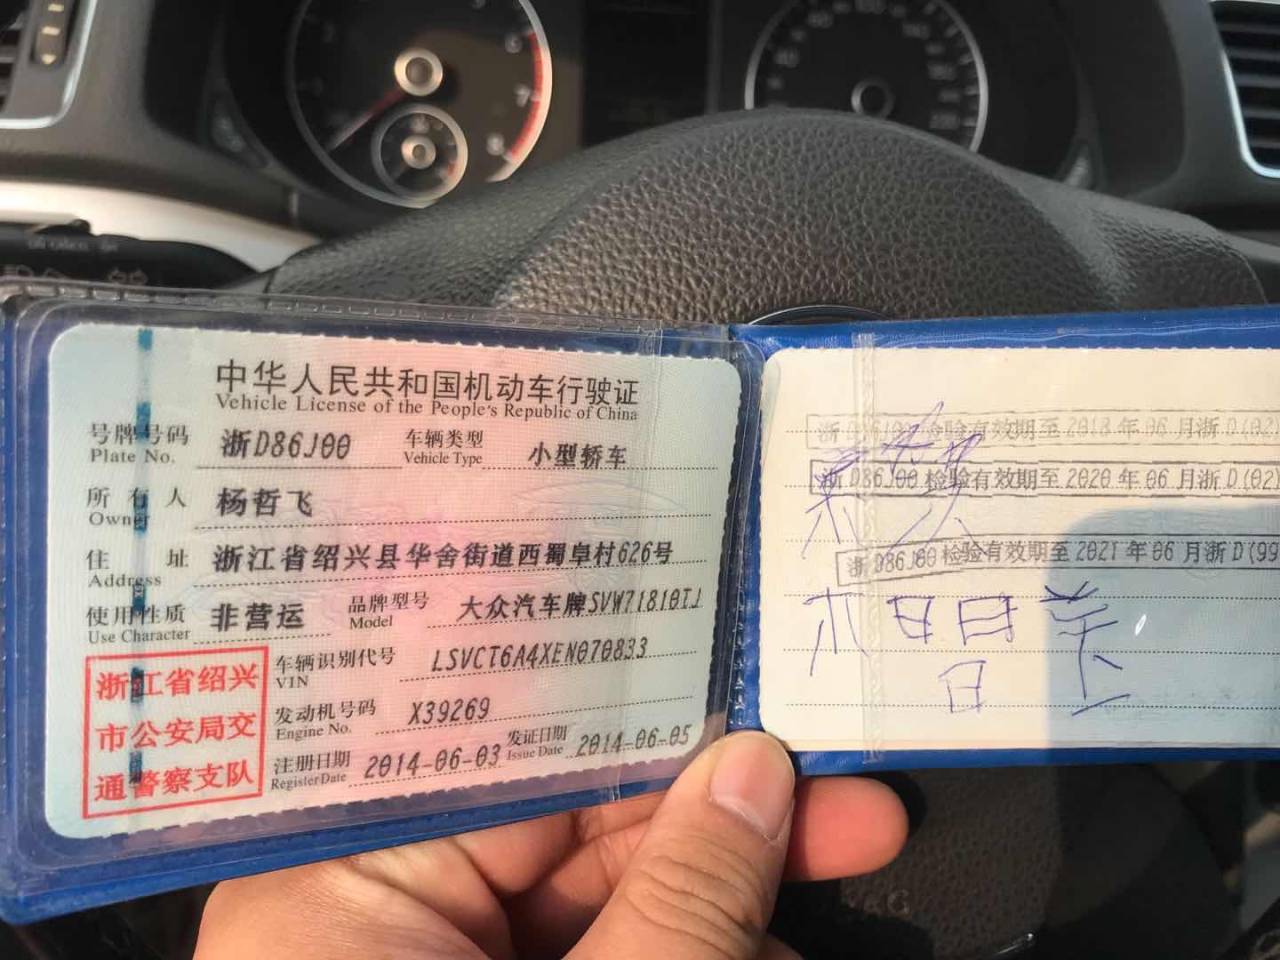 中华人民共和国机动车行驶证
Vehicle License of the People's Republic of China
号牌号码 浙D86J00 车辆类型 小型轿车
Plate No. Vehicle Type
所有人 杨哲飞
Owner
住址 浙江省绍兴县华舍街道西蜀阜村626号
Address
使用性质 非营运 品牌型号 大众汽车牌SVW71810TJ
Use Character Model
浙江省绍兴
市公安局交
通警察支队
车辆识别代号 LSVCT6A4XEN070833
VIN
发动机号码 X39269
Engine No.
注册日期 2014-06-03 发证日期 2014-06-05
Register Date Issue Date
浙D86J00检验有效期至2018年06月浙D(02)
浙D86J00检验有效期至2020年06月浙D(02)
浙D86J00检验有效期至2021年06月浙D(99
6
7
8